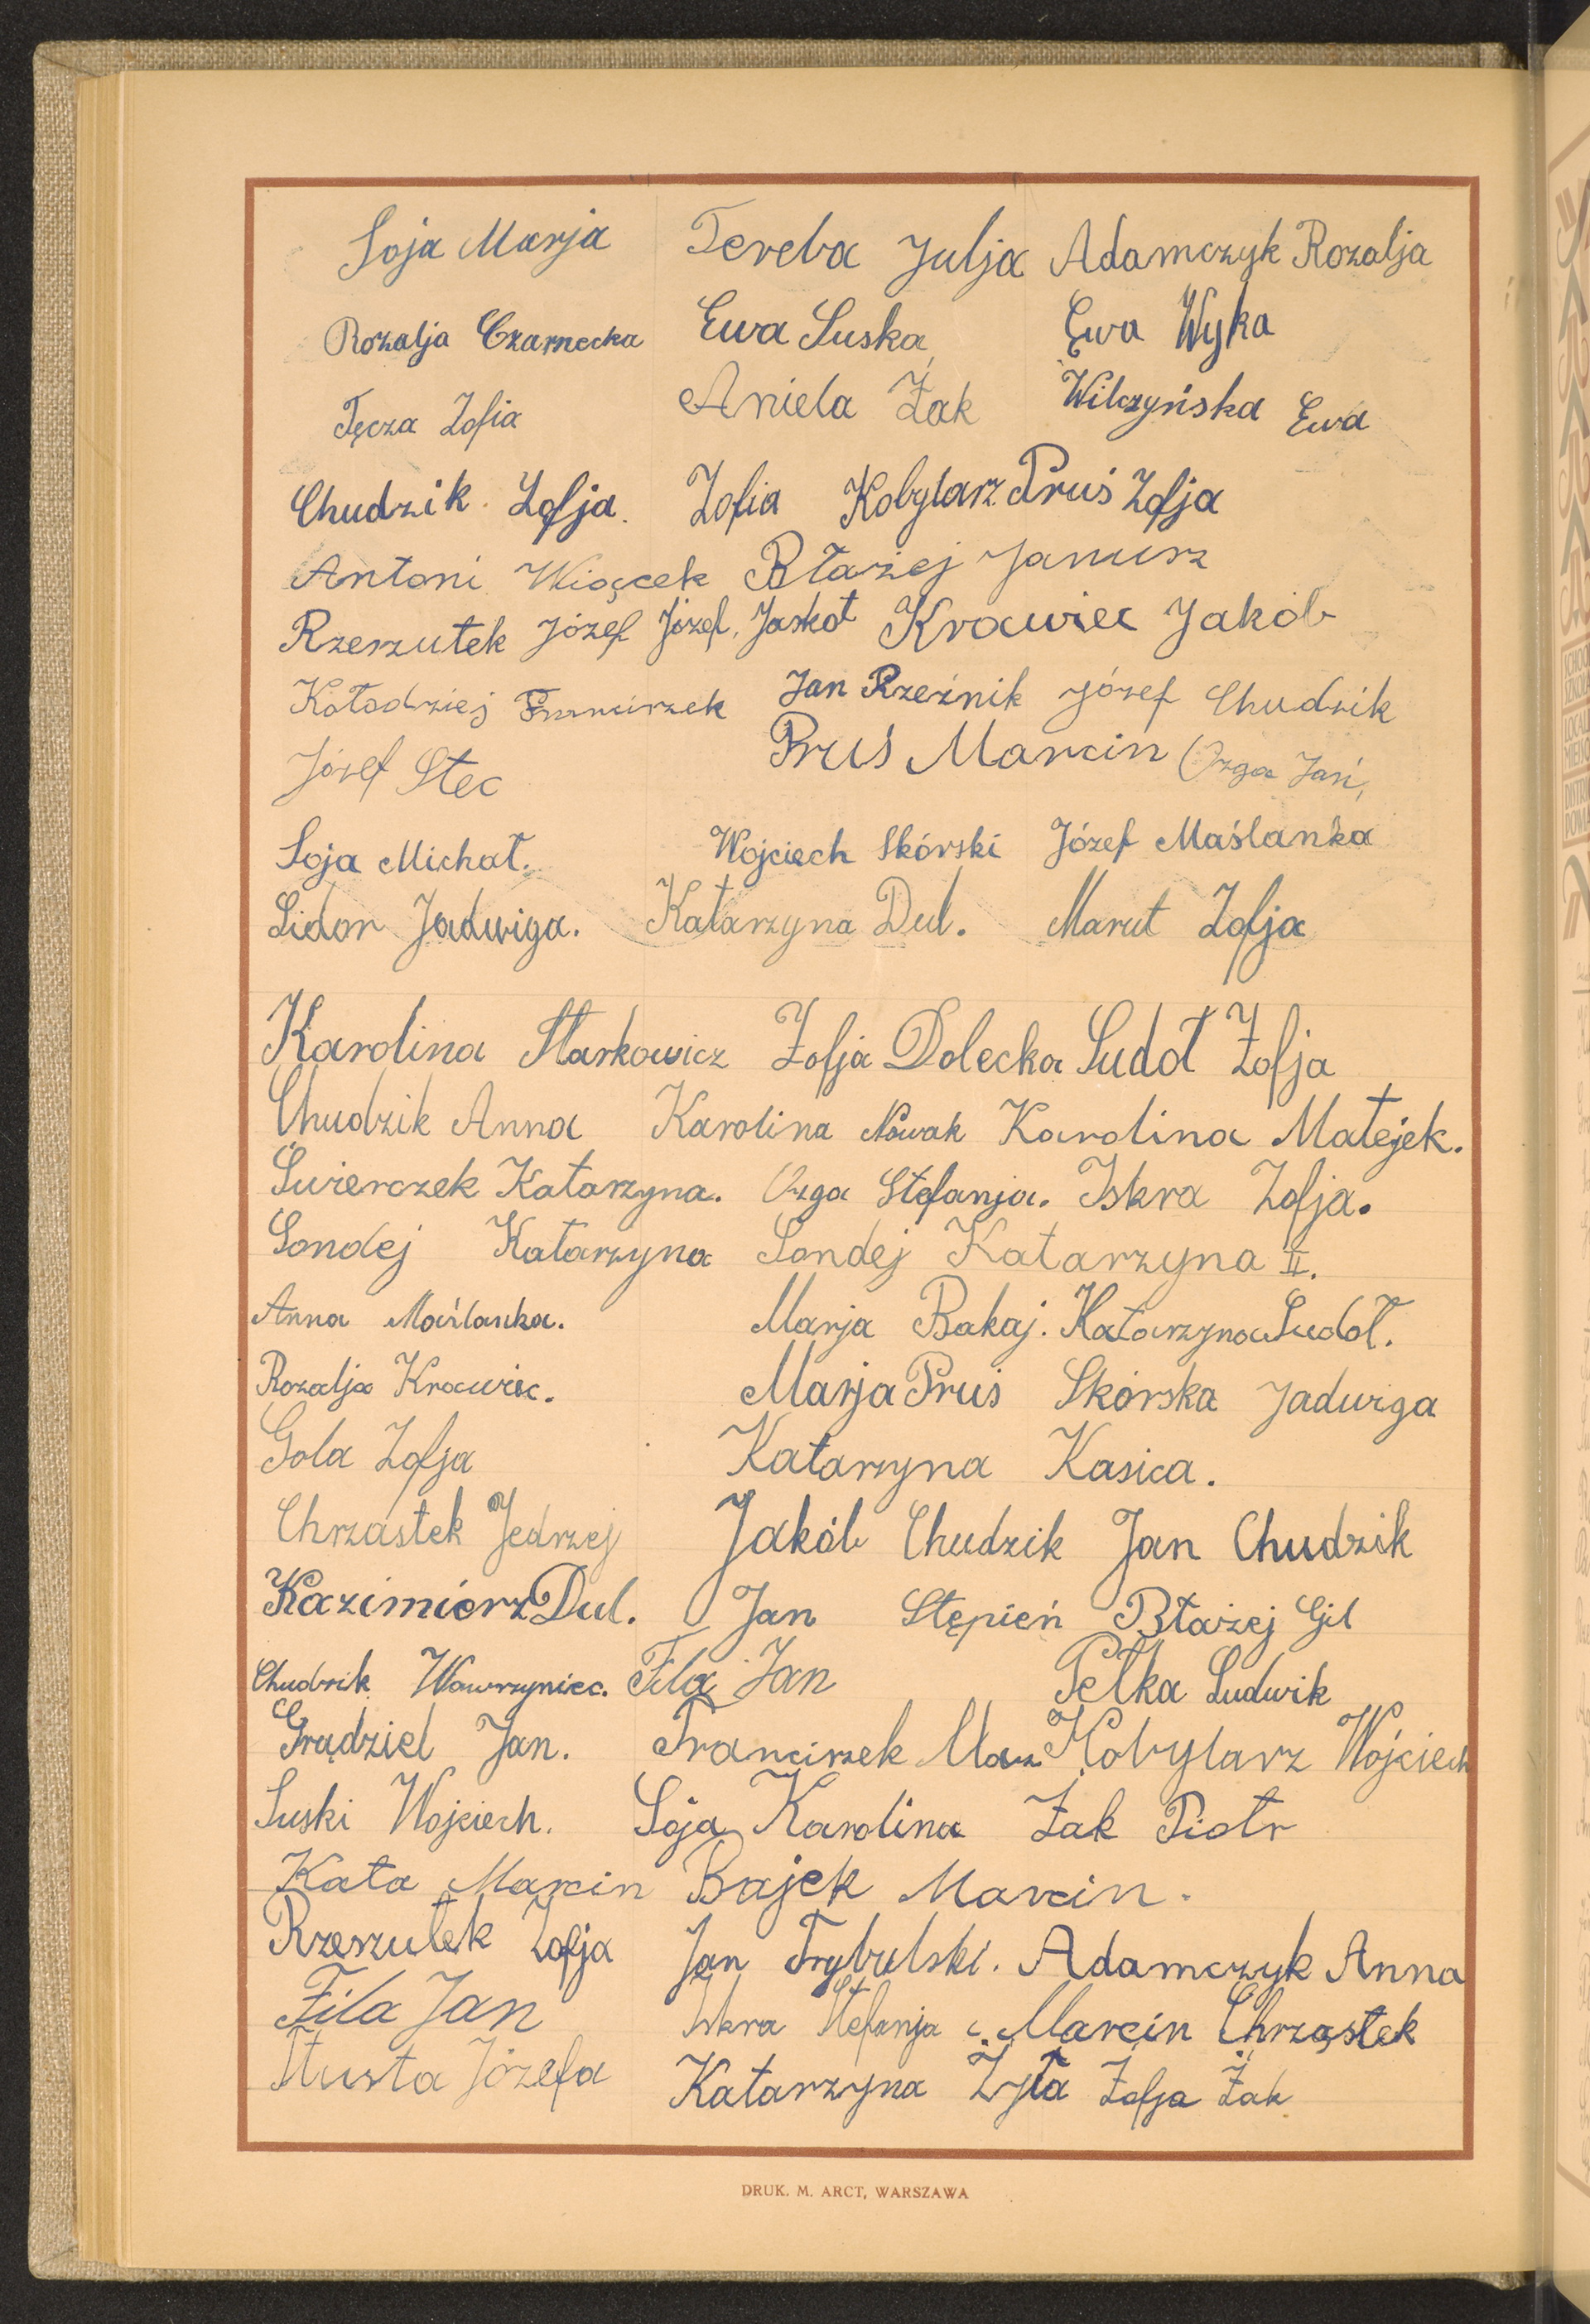 Soja Marja Tereba Julja Adamczyk Rozalja
Rozalja Czarnecka Ewa Suska Ewa Wyka
Tęcza Zofia Aniela Żak Wilczyńska Ewa
Chudzik Zofja. Zofia Kobylarz Pruś Zofja
Antoni Wiącek Błażej Janusz
Rzeszutek Józef Józef Jaskot Krawiec Jakób
Kołodziej Franciszek Jan Rzeźnik Józef Chudzik
Józef Stec Pruś Marcin Ozga Jan
Soja Michał. Wojciech Skórski Józef Maślanka
Sidor Jadwiga. Katarzyna Dul. Marut Zofja
Karolina Starkowicz Zofja Dolecka Sudoł Zofja
Chudzik Anna Karolina Nowak Karolina Matejek.
Świerczek Katarzyna. Ozga Stefanja. Iskra Zofja.
Sondej Katarzyna Sondej Katarzyna II.
Anna Maślanka. Marja Bakaj. Katarzyna Sudoł.
Rozalja Krawiec. Marja Pruś Skórska Jadwiga
Gola Zofja Katarzyna Kasica.
Chrząstek Jędrzej Jakób Chudzik Jan Chudzik
Kazimierz Dul. Jan Stępień Błażej Gil
Chudzik Wawrzyniec. Fila Jan Pełka Ludwik
Grądziel Jan. Franciszek Maz Kobylarz Wojciech
Suski Wojciech. Soja Karolina Żak Piotr
Kata Marcin Bajek Marcin.
Rzeszutek Zofja Jan Trybulski. Adamczyk Anna
Fila Jan Iskra Stefanja Marcin Chrząstek
Józefa Katarzyna Żyła Zofja Żak
DRUK. M. ARCT, WARSZAWA